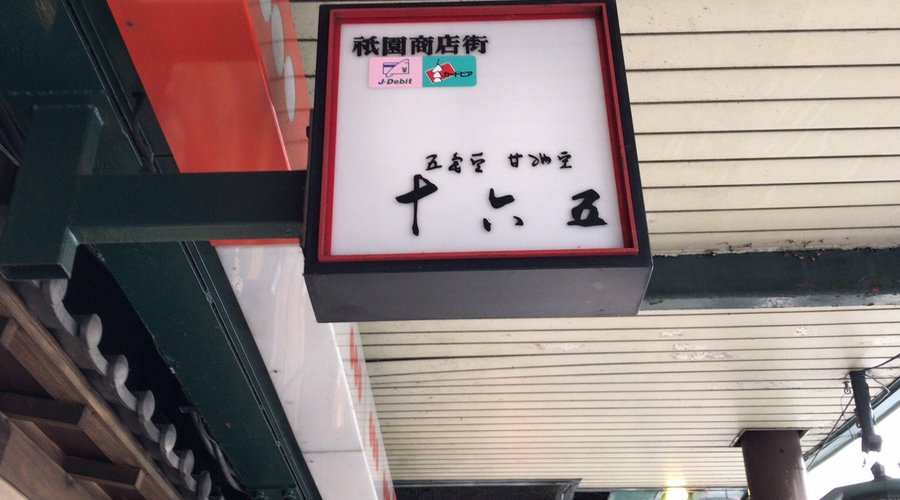 祇園商店街
J-Debit カードピア
五色豆 甘納豆
十六五